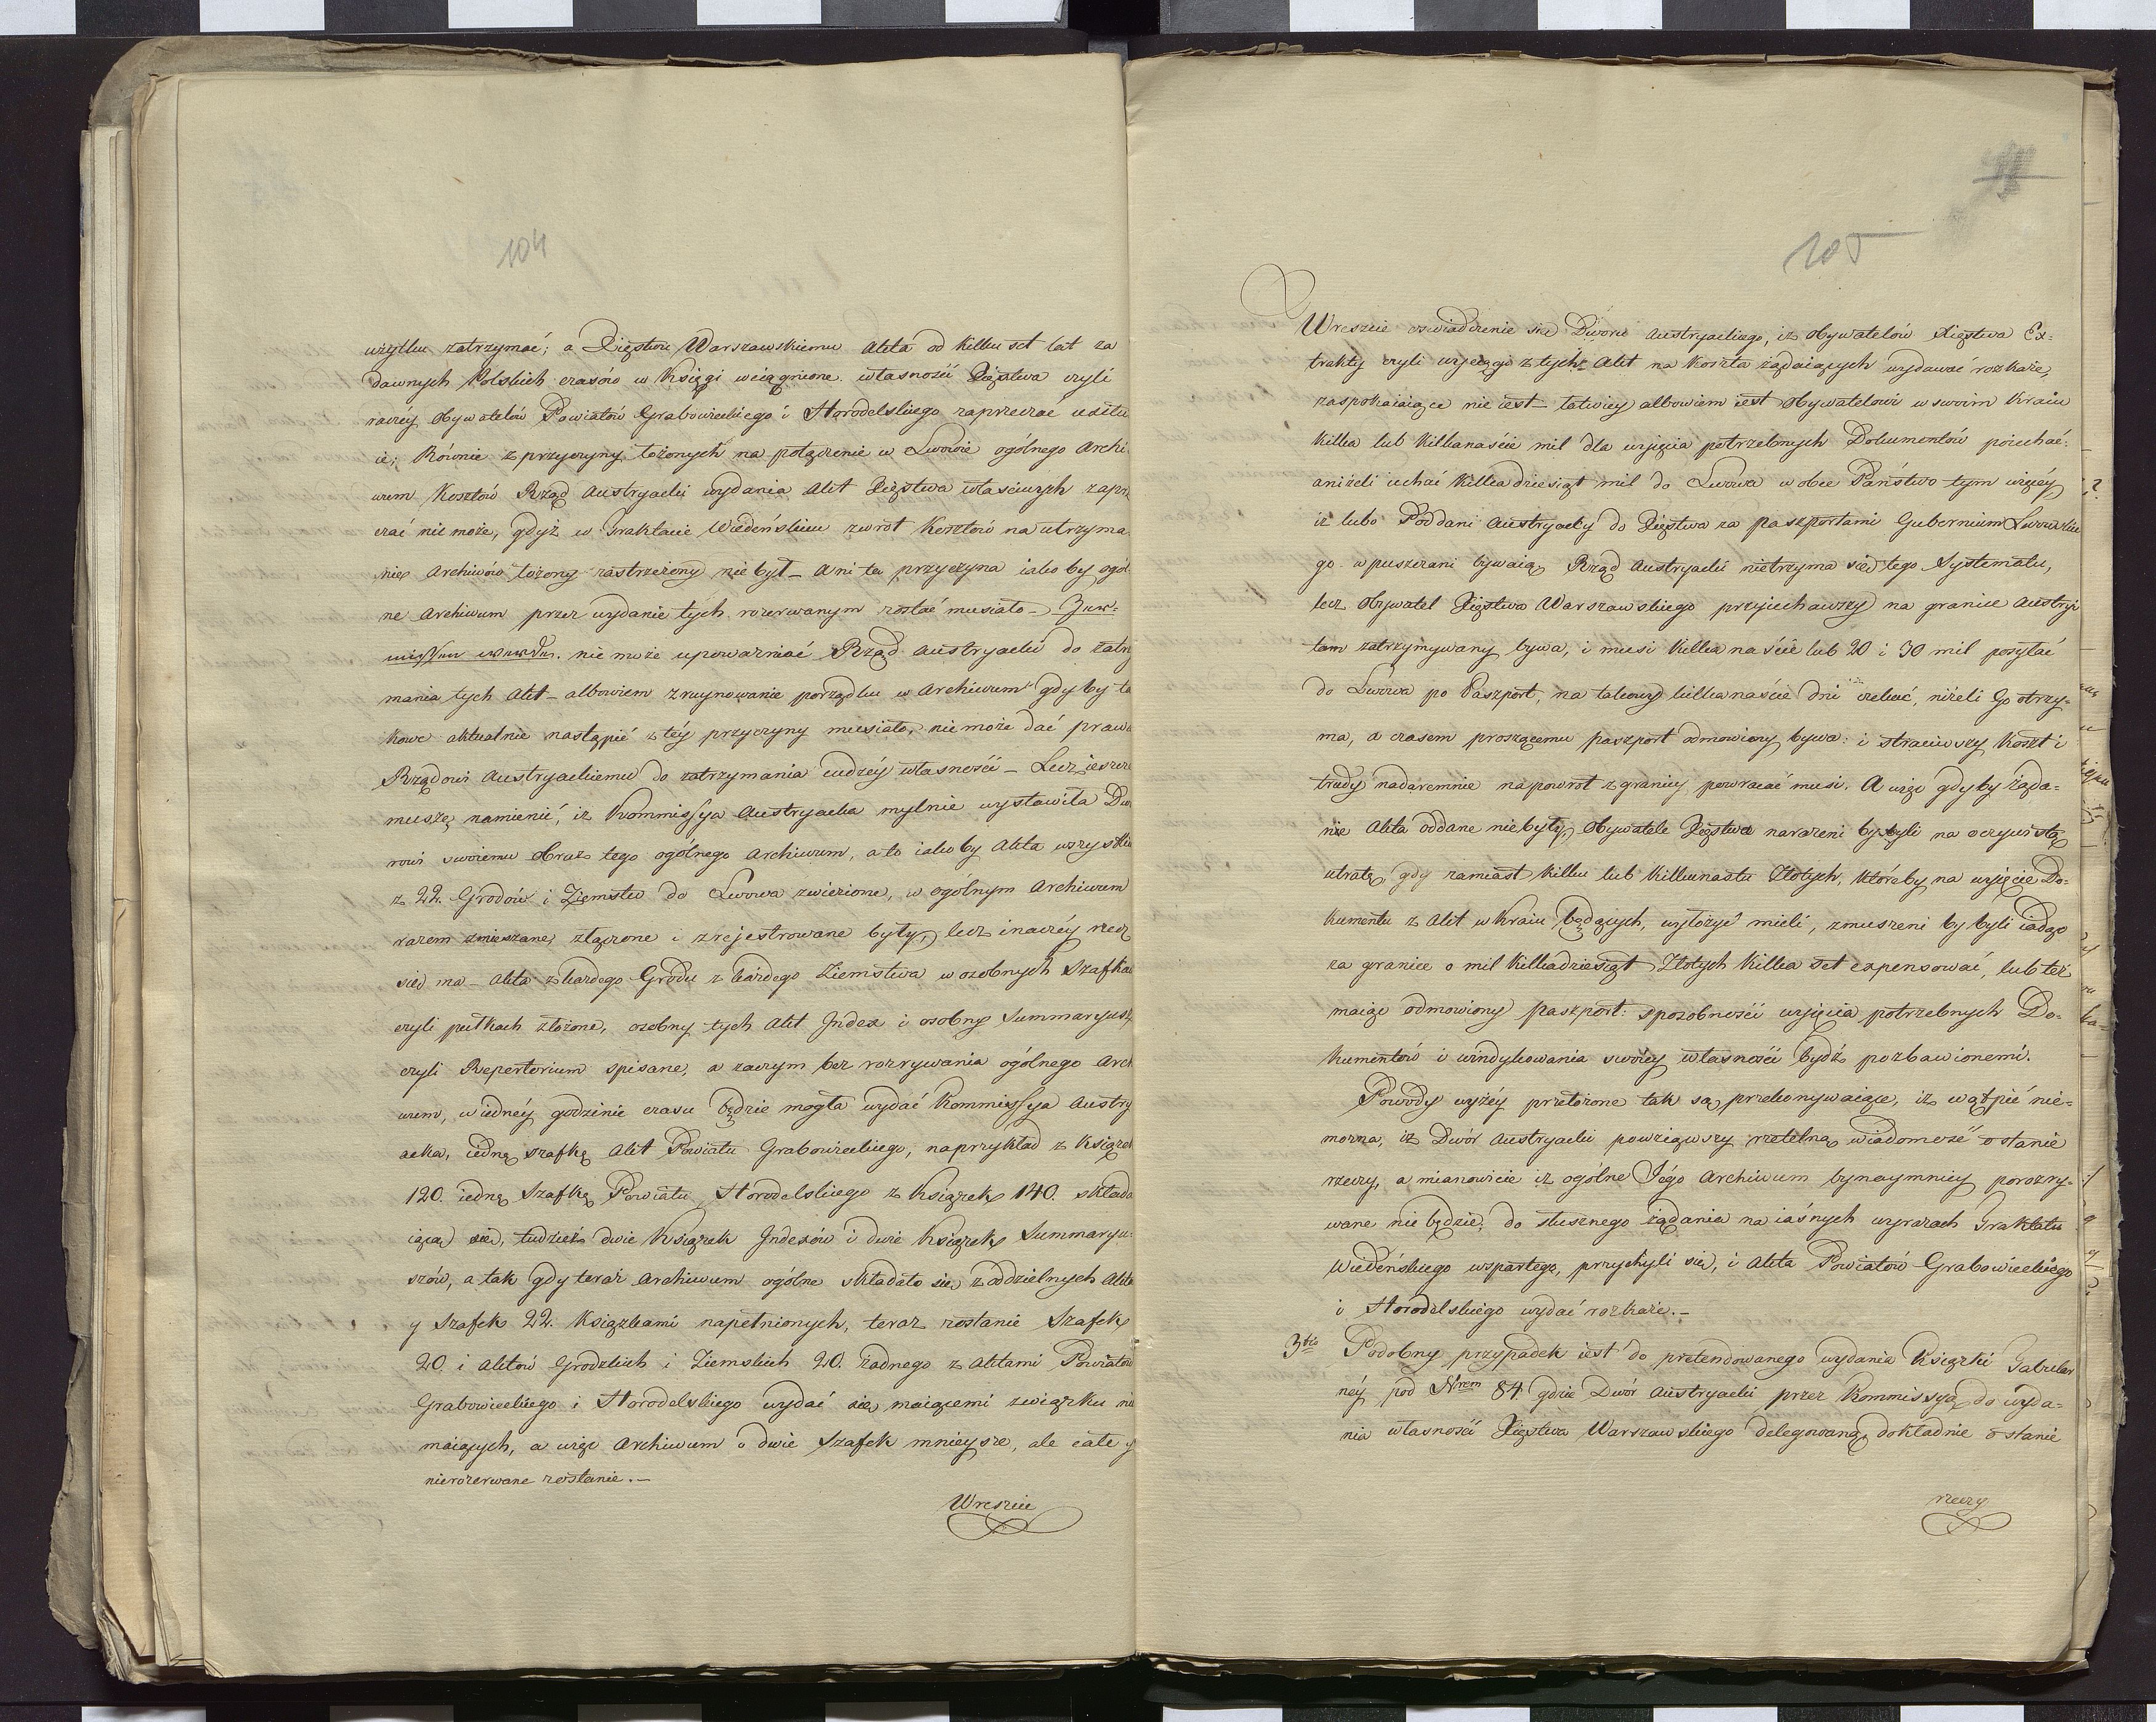 104
użytku zatrzymać; a Xięstwu Warszawskiemu Akta od kilku set lat za
dawnych Polskich czasów w Księgi wciągnione własność Xięstwa czyli
raczéy Obywatelów Powiatów Grabowieckiego i Horodelskiego zaprzeczać
ie; Równie z przyczyny łożonych na połączenie w Lwowie ogólnego Archi
wum Kosztów Rząd Austryacki wydania Akt Xięstwa właściwych zaprz
czać nie może, gdyż w Traktacie Wiedeńskim zwrot Kosztów na utrzyma
nie Archiwów łożony zastrzeżony nie był – Ani ta przyczyna iakoby ogól
ne Archiwum przez wydanie tych rozerwanym zostać musiało –
nie może upoważniać Rząd Austryacki do zatrzy
mania tych Akt – albowiem zruynowanie porządku w Archiwum gdyby ta
kowe aktualnie nastąpić z téy przyczyny musiało, nie może dać prawa
Rządowi Austryackiemu do zatrzymania cudzéy własności – Lecz ieszcze
muszę namienić, iż Kommissya Austryacka mylnie wystawiła Dwo
rowi swoiemu Obraz tego ogólnego Archiwum, a to iakoby Akta wszystkie
z 22. Grodów i Ziemstw do Lwowa zwiezione, w ogólnym Archiwum
razem zmieszane, złączone i zrejestrowane były, lecz inaczéy rzecz
się ma – Akta z każdego Grodu z każdego Ziemstwa w osobnych Szafkach
czyli pułkach złożone, osobny tych Akt Index i osobny Summaryusz
czyli Repertorium spisane, a zaczym bez rozrywania ogólnego Arch
wum, w iednéy godzinie czasu będzie mogła wydać Kommissya Austry
acka, iedną szafkę Akt Powiatu Grabowieckiego, naprzykład z Książek
120. iedną Szafkę Powiatu Horodelskiego z Książek 140. składa
iącą się, tudzież dwie Książek Indexów i dwie Książek Summaryu:
szów, a tak gdy teraz Archiwum ogólne składało się z oddzielnych Akt
y Szafek 22. Książkami napełnionych, teraz zostanie Szafek
20. i Aktów Grodzkich i Ziemskich 20. żadnego z Aktami Powiatów
Grabowieckiego i Horodelskiego wydać się maiącemi związku nie
maiących, a więc Archiwum o dwie Szafek mnieysze, ale całe y
nierozerwane zostanie. –
Wreszcie
105
Wreszcie oświadczenie się Dworu Austryackiego, iż Obywatelów Xięstwa Ex=
trakty czyli wyciągi z tych Akt na Koszta żądaiących wydawać rozkaże,
zaspokaiaiące nie iest – łatwiey albowiem iest Obywatelowi w swoim Kraiu
kilka lub kilkanaście mil dla wyięcia potrzebnych Dokumentów poiechać:
aniżeli iechać kilkadziesiąt mil do Lwowa w obce Państwo tym więcéy
iż lubo Poddani Austryaccy do Xięstwa za paszportami Gubernium Lwowskie
go wpuszczani bywaią, Rząd Austryacki nietrzyma się tego Systematu,
lecz Obywatel Xięstwa Warszawskiego przyiechawszy na granice Austryi
tam zatrzymywany bywa, i musi kilkanaście lub 20 i 30 mil posyłać
do Lwowa po Paszport, na takowy kilkanaście dni czekać, niżeli Go otrzy=
ma, a czasem proszącemu paszport odmowiony bywa: i straciwszy koszt i
trudy nadaremnie napowrot z granicy powracać musi. A więc gdyby żąda=
ne Akta oddane niebyły, Obywatele Xięstwa narażeni by byli na oczywistą
utratę, gdy zamiast kilku lub kilkunastu Złotych, któreby na wyięcie Do=
kumentu z Akt w Kraiu będących, wyłożyć mieli, zmuszeni by byli iadąc
za granice o mil kilkadziesiąt Złotych kilka set expensować, lub też
maiąc odmowiony paszport: sposobności wyięcia potrzebnych Do=
kumentów i windykowania swoiey własności bydź pozbawionemi.
Powody wyżéy przełożone tak są przekonywaiące, iż wątpić nie=
można, iż Dwór Austryacki powziąwszy rzetelną wiadomość o stanie
rzeczy, a mianowicie iż ogólne Jégo Archiwum bynaymniey porozry=
wane nie będzie, do słusznego żądania na iaśnych wyrazach Traktatu
Wiedeńskiego wspartego, przychyli się, i Akta Powiatów Grabowieckiego
i Horodelskiego wydać rozkaże. –
3tio Podobny przypadek iest do pretendowanego wydania Książki Tabular
néy pod Nrem 84 gdzie Dwór Austryacki przez Kommissyą do wyda=
nia własności Xięstwa Warszawskiego delegowaną, dokładnie o stanie
rzeczy